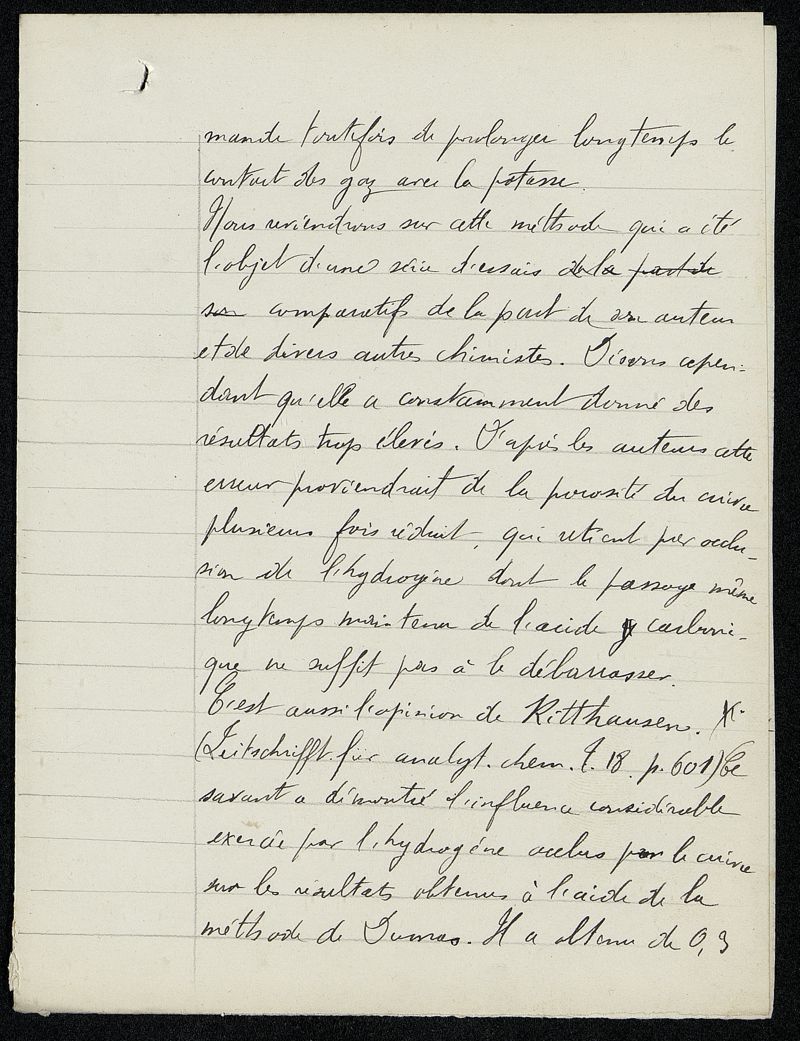 mande toutefois de prolonger longtemps le
contact des gaz avec la potasse.
Nous reviendrons sur cette méthode qui a été
l'objet d'une série d'essais de la part de
son comparatifs de la part de son auteur
et de divers autres chimistes. Disons cepen-
dant qu'elle a constamment donné des
résultats trop élevés. D'après les auteurs cette
erreur proviendrait de la porosité du cuivre
plusieurs fois réduit, qui retient par occlu-
sion de l'hydrogène dont le passage même
longtemps maintenu de l'acide carboni-
que ne suffit pas à le débarrasser.
C'est aussi l'opinion de Ritthausen.
(Zeitschrifft. für analyt. chem. t. 18. p. 601) Ce
savant a démontré l'influence considérable
exercée par l'hydrogène occlus par le cuivre
sur les résultats obtenus à l'aide de la
méthode de Dumas. Il a obtenu de 0,3